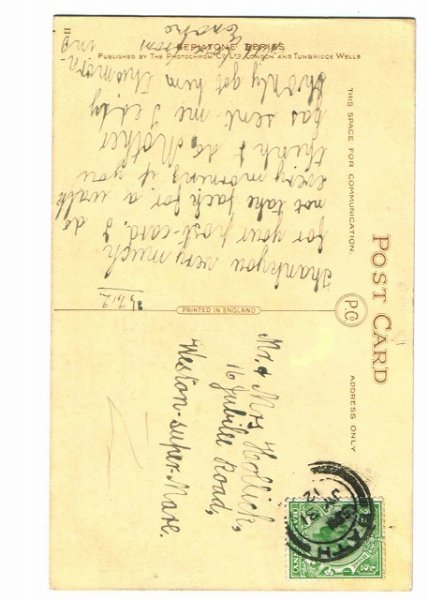 SEPIATONE SERIES
PUBLISHED BY THE PHOTOCHROM CO. LTD. LONDON AND TUNBRIDGE WELLS
POST CARD
P.Co
THIS SPACE FOR COMMUNICATION.
ADDRESS ONLY
PRINTED IN ENGLAND
Thankyou very much
for your post-card. I do
not take Jack for a walk
every morning if you
think I do, Mother
has sent me Teddy
I only got him this morn-
ing
Mr. & Mrs Hollick,
16 Jubilee Road,
Weston-super-Mare.
BATH
12